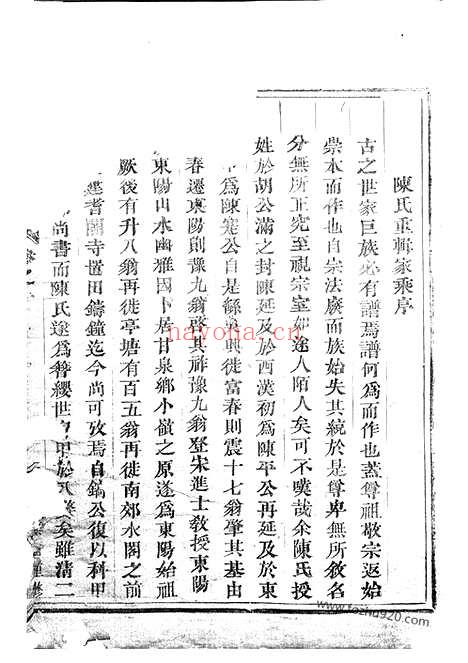 陳氏重輯家乘序
古之世家巨族必有譜焉譜何為而作也蓋尊祖敬宗返始
崇本而作也自宗法廢而族始失其統於是尊卑無所敘名
分無所正究至視宗室如途人陌人矣可不嘆哉余陳氏授
姓於胡公滿之封陳延及於西漢初為陳平公再延及於東
為陳寔公自是縣興徙富春則震十七翁肇其基由
春遷東陽則豫九翁啓其祚豫九翁登宋進士教授東陽
東陽山水幽雅因卜居甘泉鄉小嶺之原遂為東陽始祖
厥後有升八翁再徙亭塘有百五翁再徙南郊水閣之前
建耆闍寺置田鑄鐘迄今尚可攷焉自鎬公復以科甲
尚書而陳氏遂為簪纓世 矣雖清二
nayona.cn
www.fozhu920.com